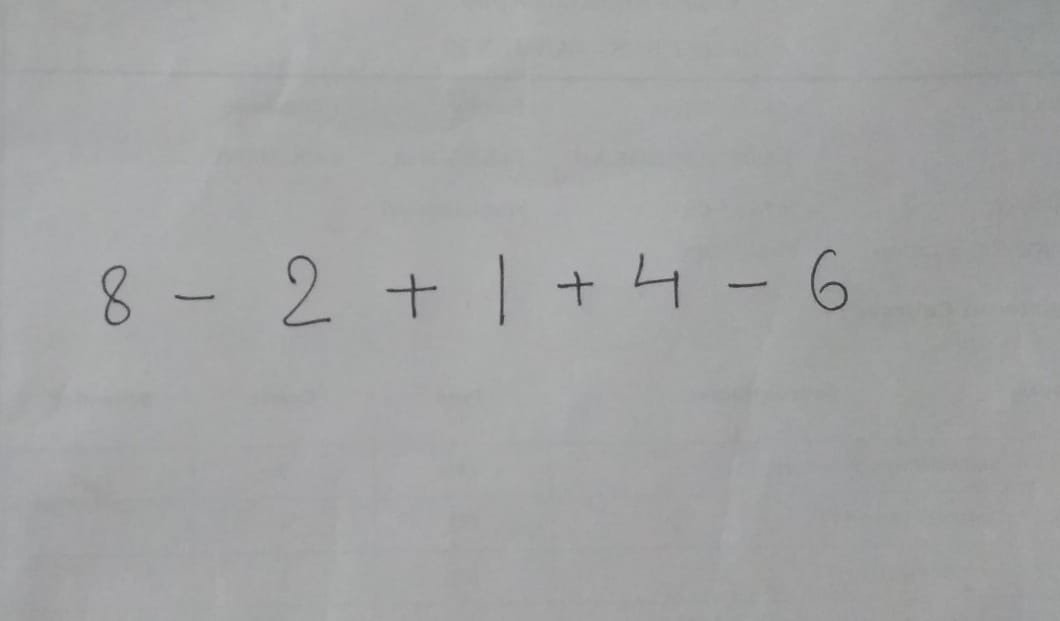 8 - 2 + 1 + 4 - 6